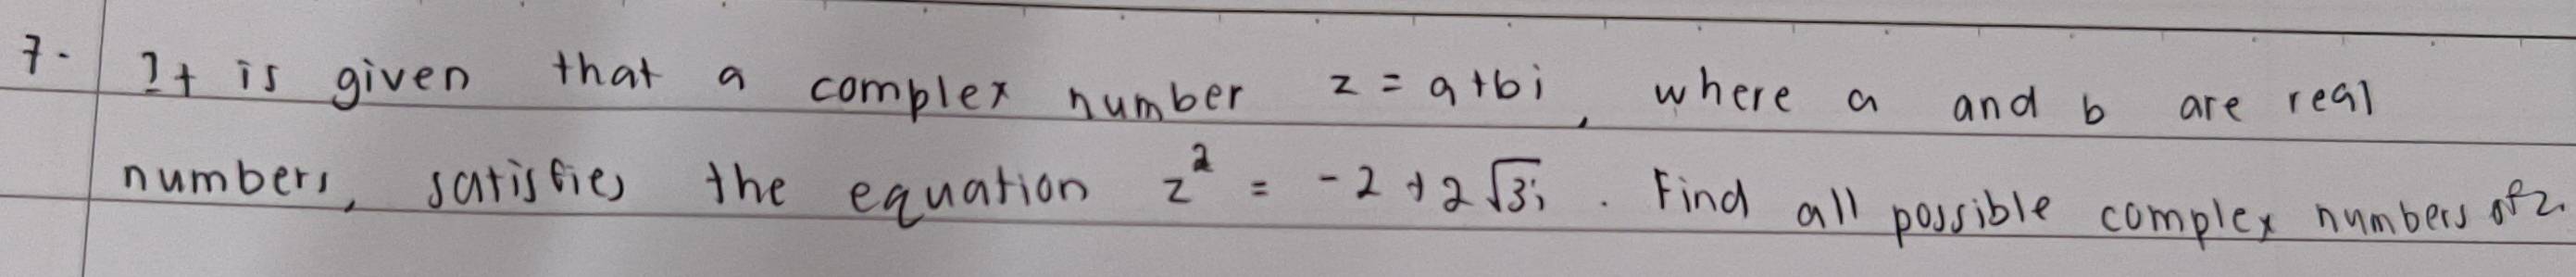 7. It is given that a complex number z = a+bi, where a and b are real
numbers, satisfies the equation z² = -2 + 2√3i. Find all possible complex numbers of z.